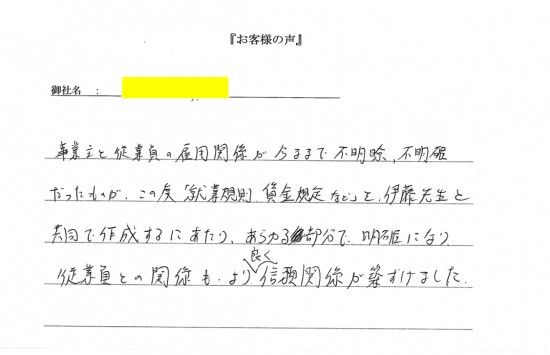 『お客様の声』
御社名 :
事業主と従業員の雇用関係が今るまで不明瞭、不明確
だったものが、この度「就業規則、賃金規定など」を、伊藤先生と
共同で作成するにあたり、あらゆる部分で、明確になり
従業員との関係も、より良く信頼関係が築ずけました。